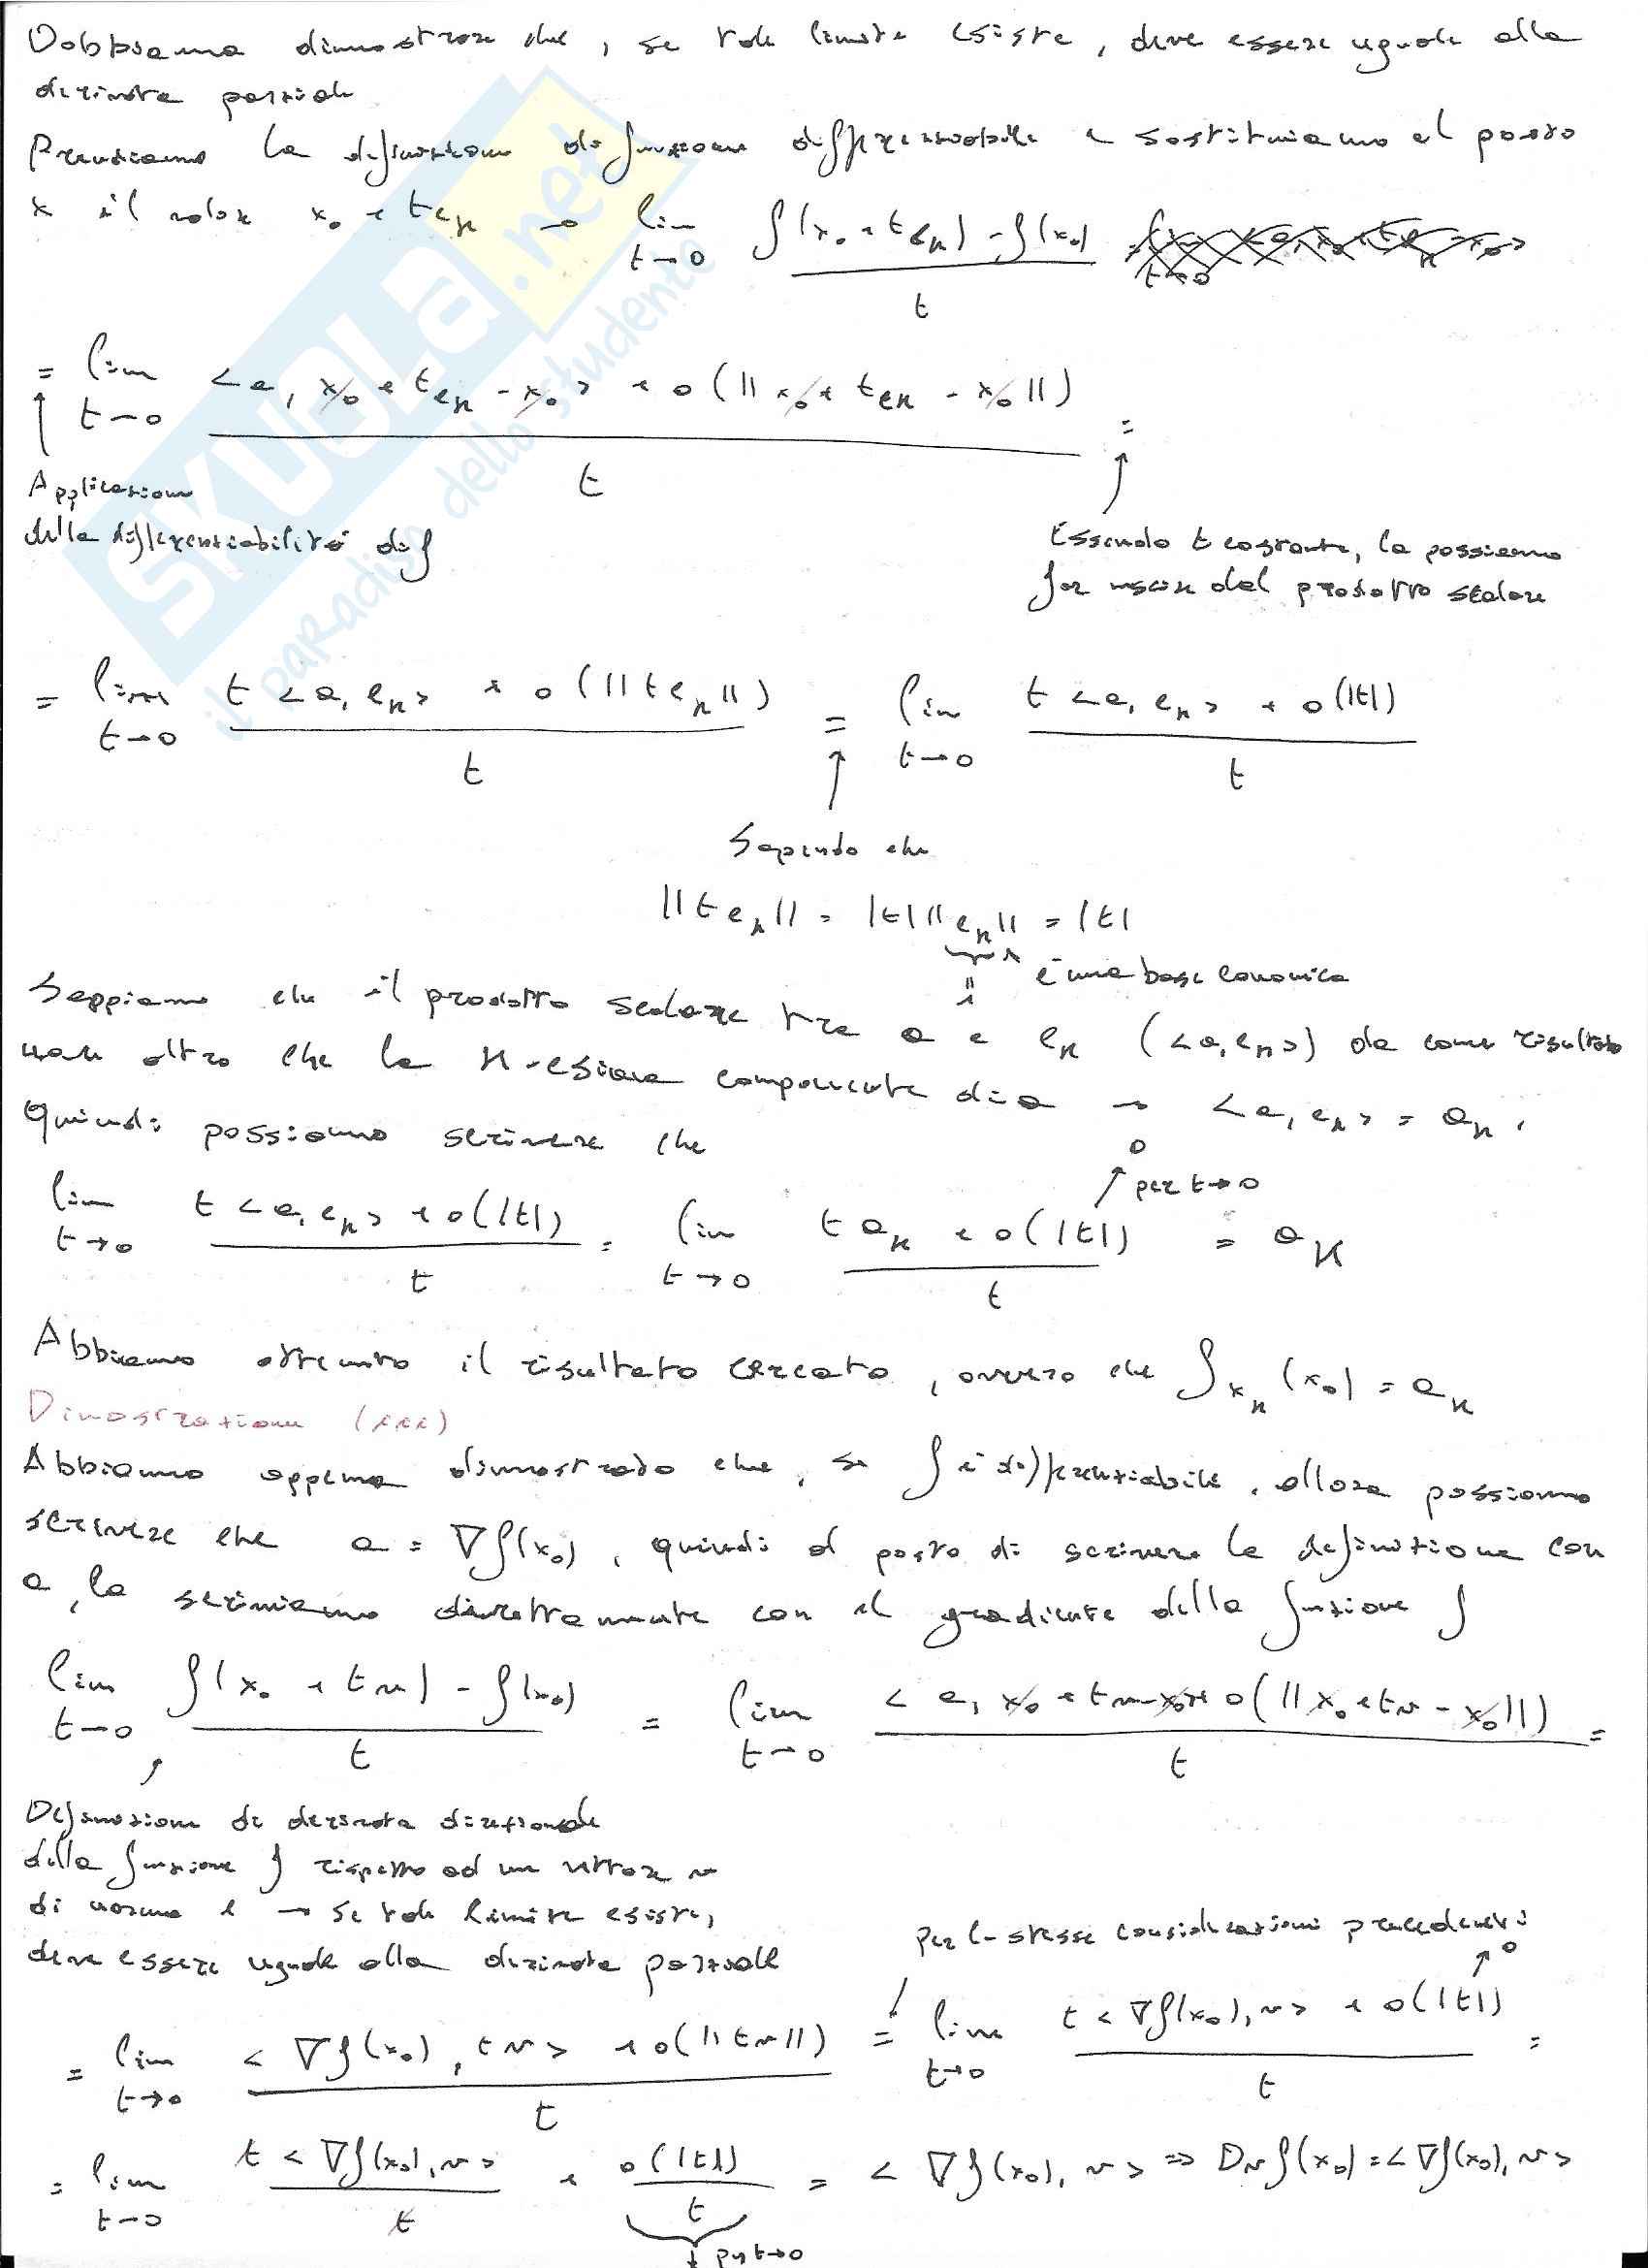 Dobbiamo dimostrare che, se tale limite esiste, deve essere uguale alla
derivata parziale
Prendiamo la definizione di funzione differenziabile e sostituiamo al posto
x il valore x₀ + teₖ → lim t→0 f(x₀ + teₖ) - f(x₀) / t
= lim t→0 <a, x₀ + teₖ - x₀> + o(||x₀ + teₖ - x₀||) / t =
Applicazione
della differenziabilità di f
Essendo t costante, la possiamo
far uscire dal prodotto scalare
= lim t→0 t<a, eₖ> + o(||teₖ||) / t = lim t→0 t<a, eₖ> + o(|t|) / t
Sapendo che
||teₖ|| = |t| ||eₖ|| = |t|
è una base canonica
1
Sappiamo che il prodotto scalare tra a e eₖ (<a, eₖ>) da come risultato
non altro che la k-esima componente di a → <a, eₖ> = aₖ.
Quindi possiamo scrivere che
0
per t→0
lim t→0 t<a, eₖ> + o(|t|) / t = lim t→0 t aₖ + o(|t|) / t = aₖ
Abbiamo ottenuto il risultato cercato, ovvero che fₓₖ(x₀) = aₖ
Dimostrazione (iii)
Abbiamo appena dimostrato che, se f è differenziabile, allora possiamo
scrivere che a = ∇f(x₀), quindi al posto di scrivere la definizione con
a, la scriviamo direttamente con il gradiente della funzione f
lim t→0 f(x₀ + tv) - f(x₀) / t = lim t→0 <a, x₀ + tv - x₀> + o(||x₀ + tv - x₀||) / t =
Definizione di derivata direzionale
della funzione f rispetto ad un vettore v
di norma 1 → se tale limite esiste,
deve essere uguale alla derivata parziale
per le stesse considerazioni precedenti
0
= lim t→0 <∇f(x₀), tv> + o(||tv||) / t = lim t→0 t<∇f(x₀), v> + o(|t|) / t =
= lim t→0 t<∇f(x₀), v> / t + o(|t|) / t = <∇f(x₀), v> => Dᵥf(x₀) = <∇f(x₀), v>
per t→0
SKUOLA.net
il paradiso dello studente